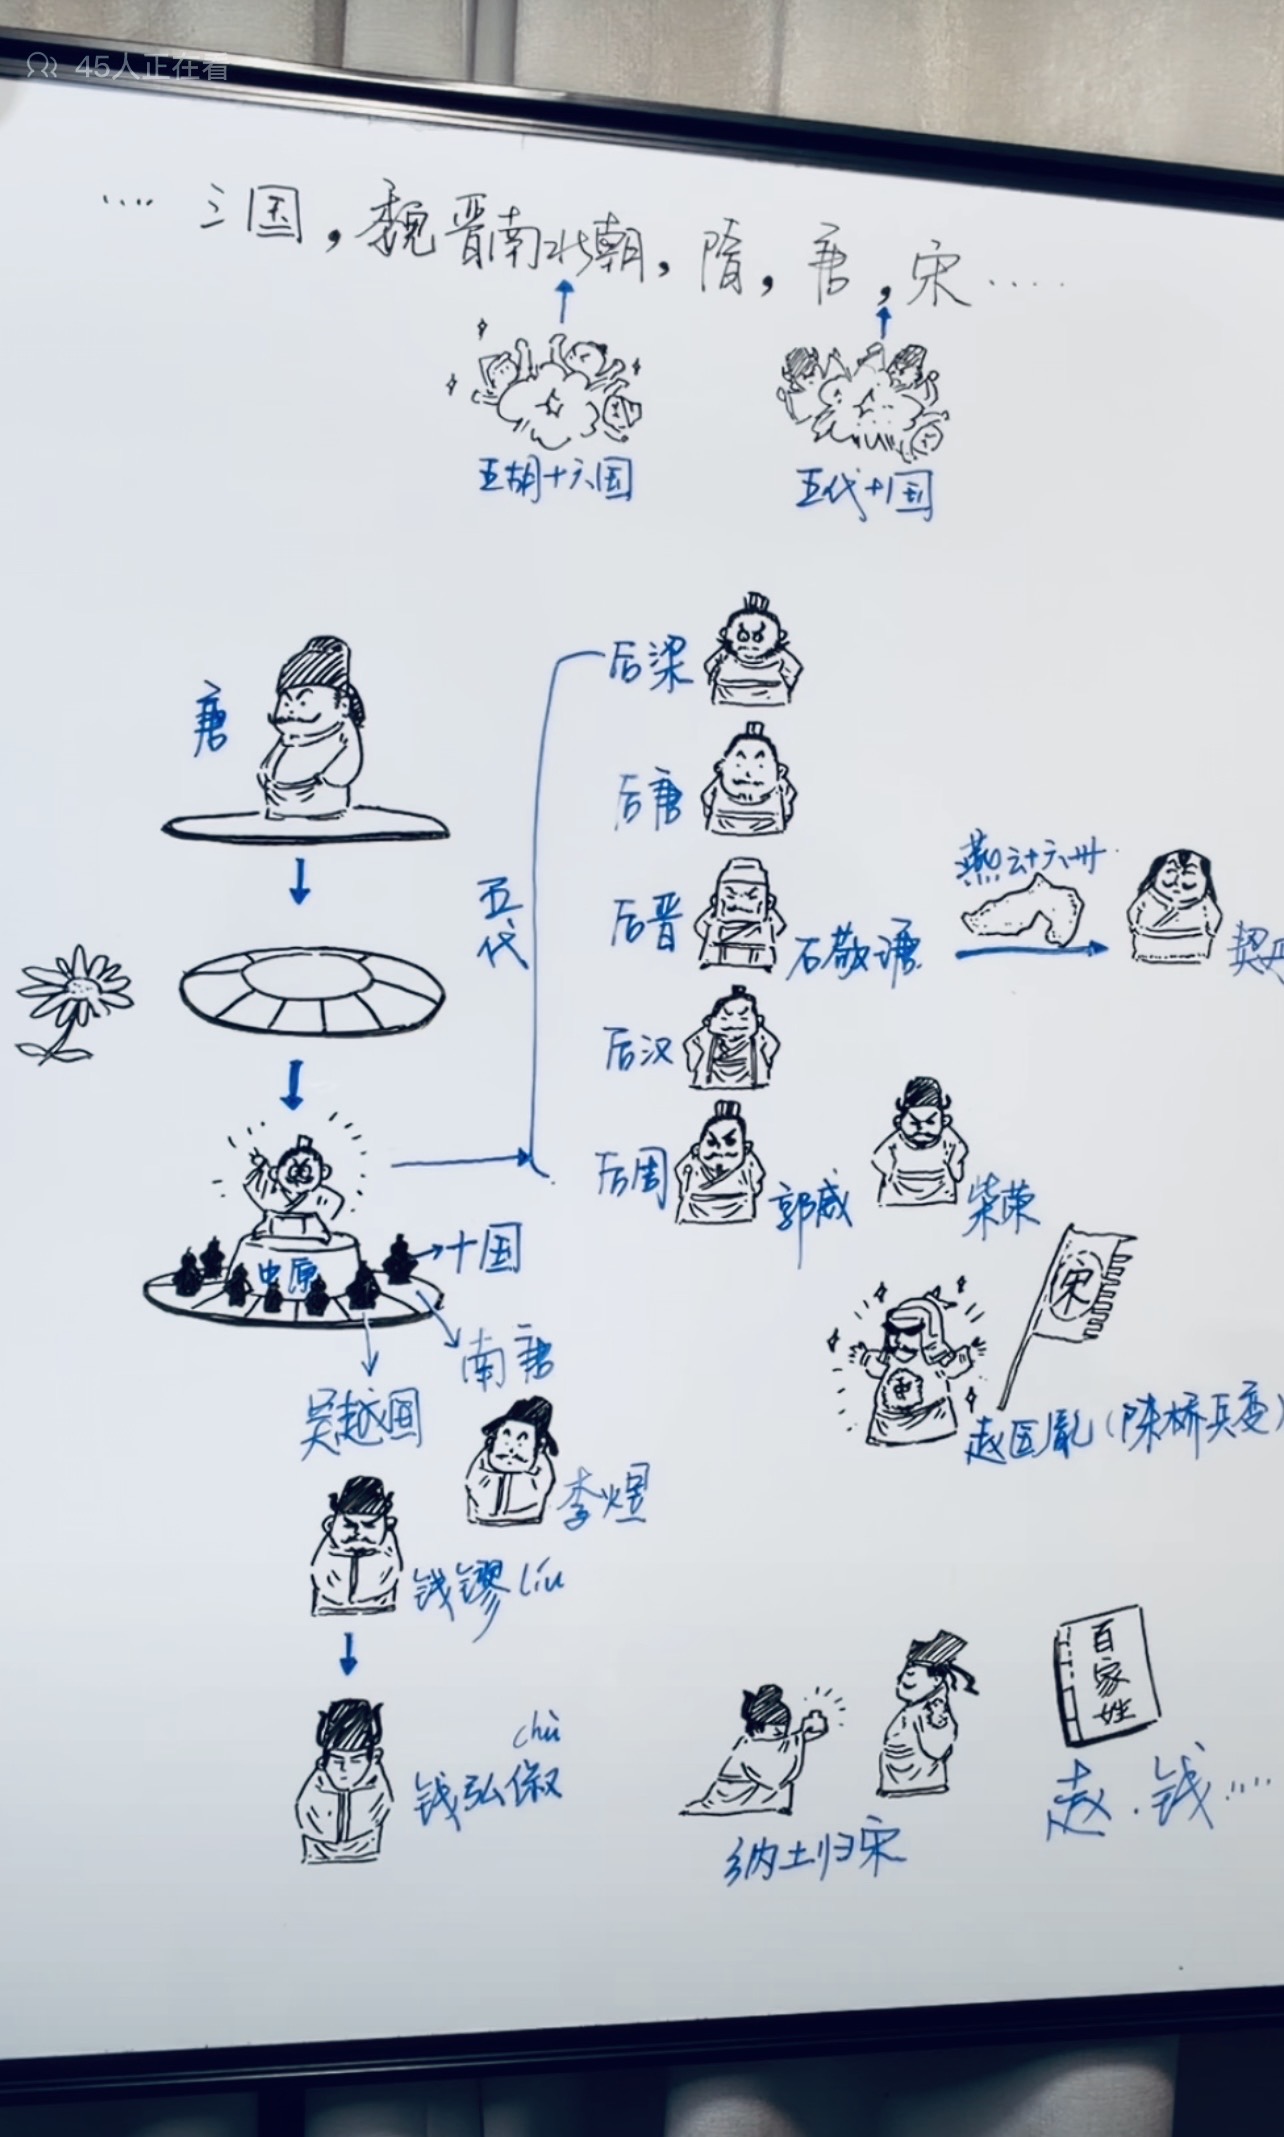 45人正在看
…… 三国，魏晋南北朝，隋，唐，宋……
五胡十六国
五代十国
唐
五代
后梁
后唐
后晋
石敬瑭
燕云十六州
契丹
后汉
后周
郭威
柴荣
中原
十国
南唐
吴越国
李煜
宋
赵匡胤（陈桥兵变）
钱镠 líu
chù
钱弘俶
纳土归宋
百家姓
赵．钱……